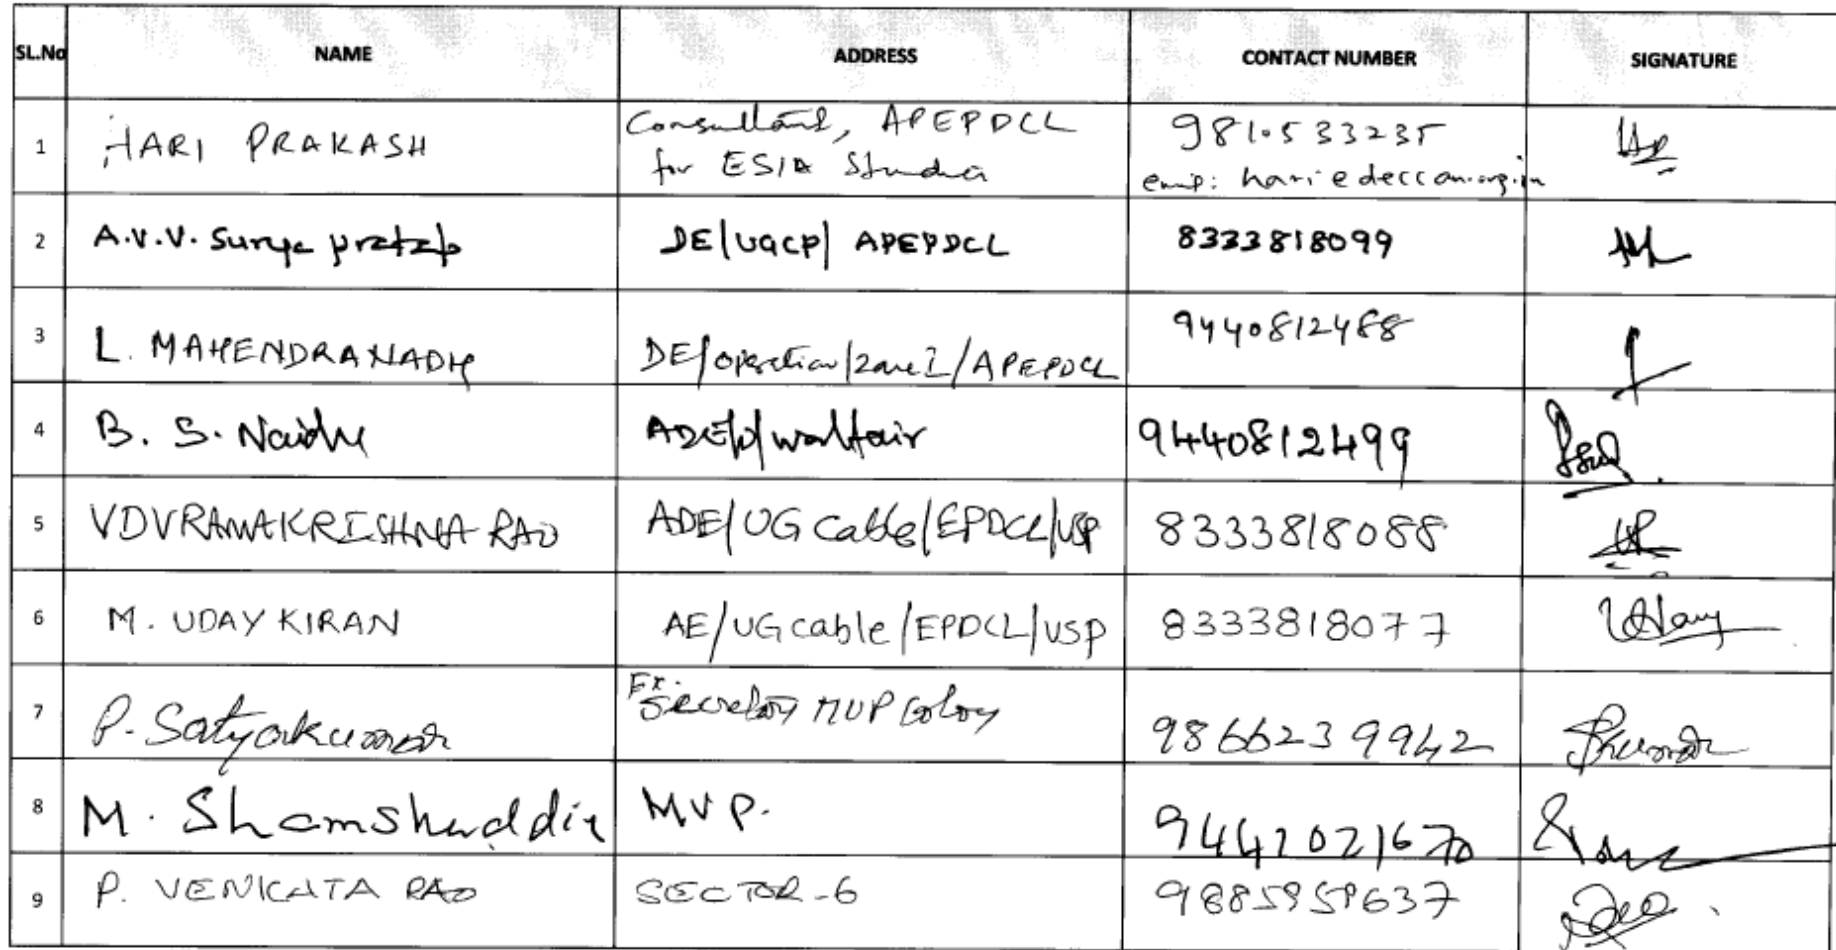 SL.No NAME ADDRESS CONTACT NUMBER SIGNATURE
1 HARI PRAKASH Consultant, APEPDCL 9810533235
for ESIA Studies hari@deccan.org.in
2 A.V.V. Surya pratap DE/UGCP/ APEPDCL 8333818099
3 L. MAHENDRANADH DE/operation/zone I/APEPDCL 9440812488
4 B. S. Naidu waltair 9440812499
5 VDVRAMAKRISHNA RAO ADE/UG Cable/EPDCL/VSP 8333818088
6 M. UDAY KIRAN AE/UG cable/EPDCL/VSP 8333818077 Uday
7 P. Satyakumar Ex. Secretary MVP Colony 9866239942 PKumar
8 M. Shamshuddin MVP.
9 P. VENKATA RAO SECTOR-6